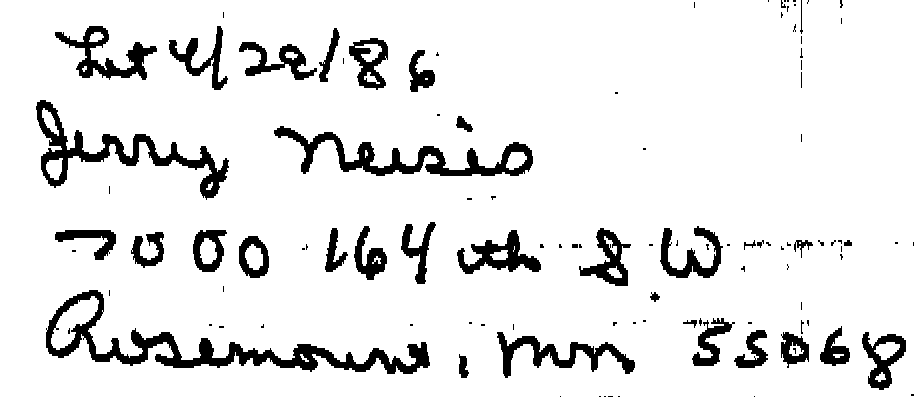 4/28/86
Jerry Neisis
7000 164 th S W
Rosemount, Mn 55068